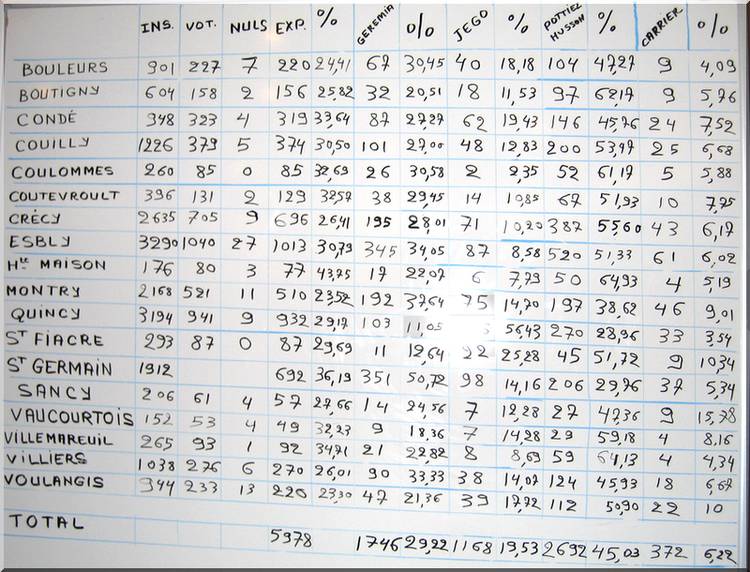 INS. VOT. NULS EXP. % GEREMIA % JEGO % POTTIEZ HUSSON % CARRIER %
BOULEURS 901 227 7 220 24,41 67 30,45 40 18,18 104 47,27 9 4,09
BOUTIGNY 604 158 2 156 25,82 32 20,51 18 11,53 97 62,17 9 5,76
CONDÉ 948 323 4 319 33,64 87 27,27 62 19,43 146 45,76 24 7,52
COUILLY 1226 379 5 374 30,50 101 27,00 48 12,83 200 53,47 25 6,68
COULOMMES 260 85 0 85 32,69 26 30,58 2 2,35 52 61,17 5 5,88
COUTEVROULT 396 131 2 129 32,57 38 29,45 14 10,85 67 51,93 10 7,75
CRÉCY 2635 705 9 696 26,41 195 28,01 71 10,20 387 55,60 43 6,17
ESBLY 3290 1040 27 1013 30,79 345 34,05 87 8,58 520 51,33 61 6,02
Hte MAISON 176 80 3 77 43,75 17 22,07 6 7,79 50 64,93 4 5,19
MONTRY 2168 521 11 510 23,52 192 37,64 75 14,70 197 38,62 46 9,01
QUINCY 3194 941 9 932 29,17 103 11,05 56,43 270 28,96 33 3,54
ST FIACRE 293 87 0 87 29,69 11 12,64 22 25,28 45 51,72 9 10,34
ST GERMAIN 1912 692 36,19 351 50,72 98 14,16 206 29,76 37 5,34
SANCY 206 61 4 57 27,66 14 24,56 7 12,28 27 47,36 9 15,78
VAUCOURTOIS 152 53 4 49 32,23 9 18,36 7 14,28 29 59,18 4 8,16
VILLEMAREUIL 265 93 1 92 34,71 21 22,82 8 8,69 59 64,13 4 4,34
VILLIERS 1038 276 6 270 26,01 90 33,33 38 14,07 124 45,93 18 6,67
VOULANGIS 944 233 13 220 23,30 47 21,36 39 17,72 112 50,90 22 10
TOTAL 5978 1746 29,22 1168 19,53 2692 45,03 372 6,22